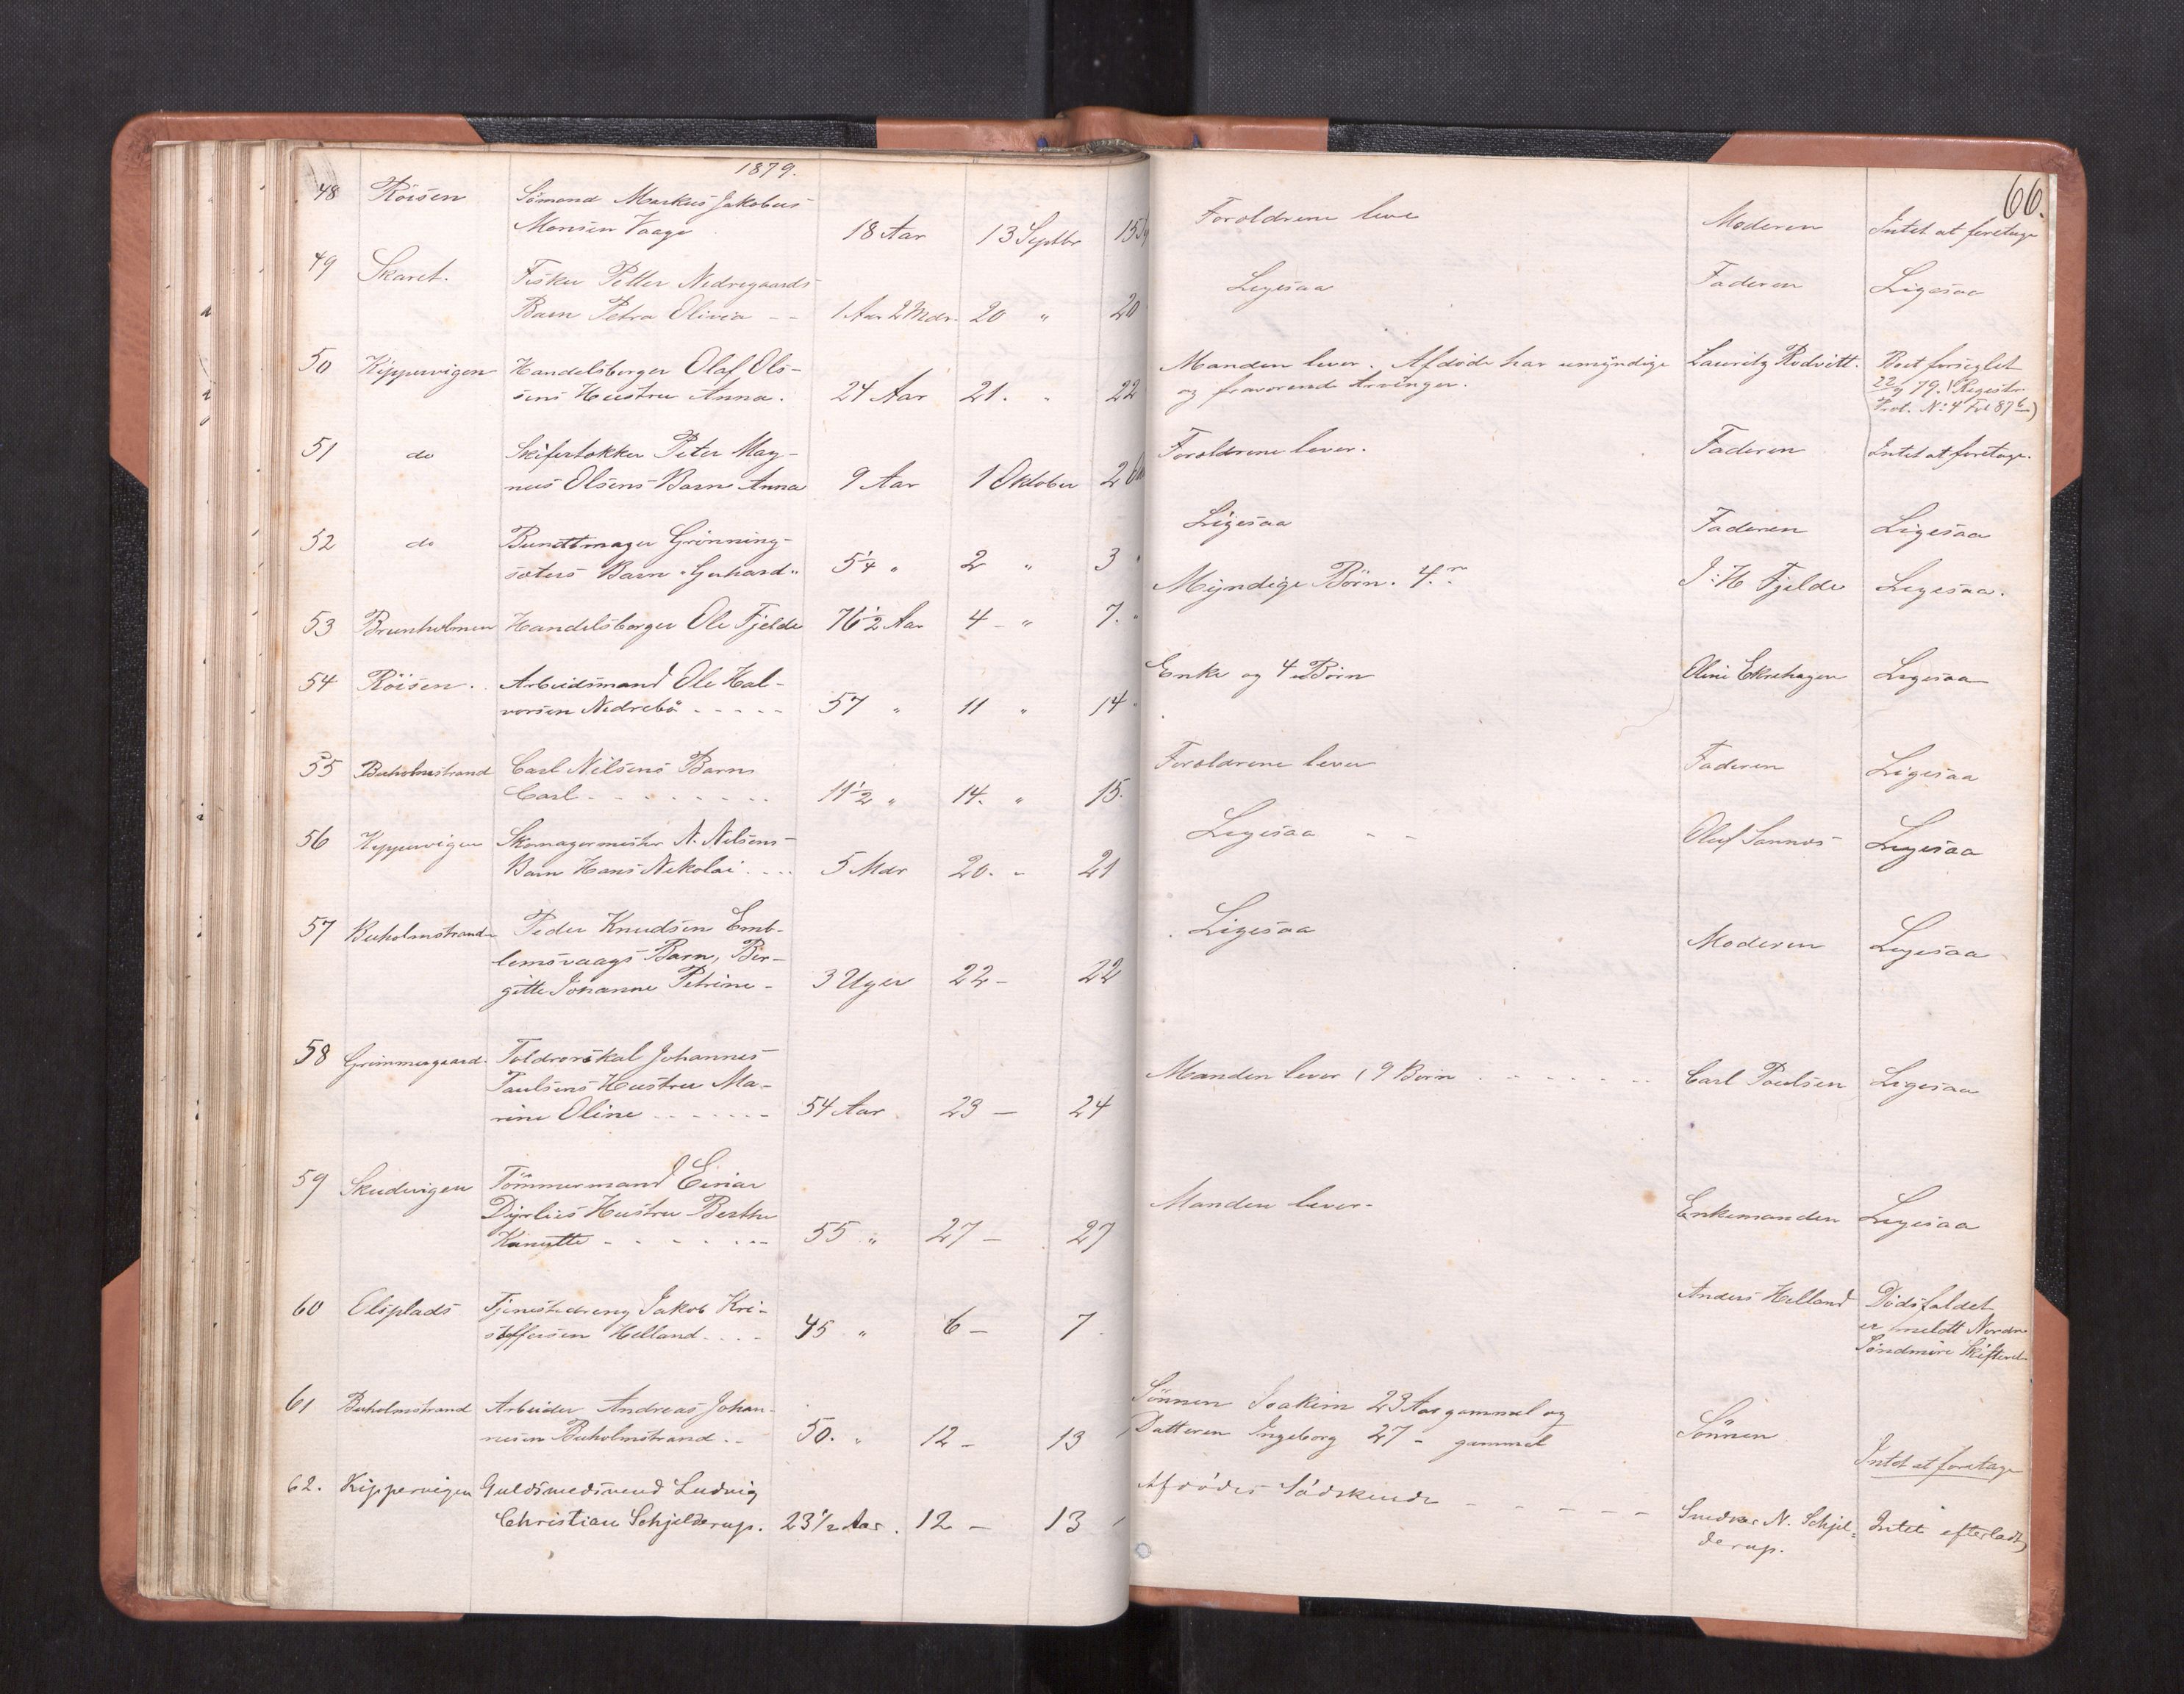 1879.
66.
48 Röisen Sömand Markus Jakobus
Monsen Vaage 18 Aar 13 Septbr 15
Foroldrene leve Moderen Intet at foretage
49 Skaret. Fisker Petter Nedregaards
Barn Petra Olivia - - 1 Aar 2 Mdr. 20 " 20
Ligesaa Faderen Ligesaa
50 Kippervigen Handelsborger Olaf Ols-
sens Hustru Anna. 24 Aar 21. " 22
Manden lever. Afdöde har umyndige Lauritz Rödvitt. Boet forseglet
og fraværende Arvinger. 22/9 79. (Registr.
Prot. No: 4 Fol 87 b)
51 do Skifertækker Peter Mag-
nus Olsens Barn Anna 9 Aar 1 Oktober 2
Foroldrene lever. Faderen Intet at foretage.
52 do Bundtmager Grönning-
sæters Barn "Gerhard" 5 1/4 " 2 " 3 "
Ligesaa Faderen Ligesaa
53 Brunholmen Handelsborger Ole Fjelde 76 1/2 Aar 4 - " 7. "
Myndige Börn. 4. J: H Fjelde Ligesaa.
54 Röisen. Arbeidsmand Ole Hal-
vorsen Nedrebö - - - - - 57 " 11 " 14 "
Enke og 4 Börn Oline Ekrehagen Ligesaa
55 Buholmstrand Carl Nilsens Barn
Carl - - - - - - - - 11 1/2 " 14. " 15.
Foroldrene lever Faderen Ligesaa
56 Kippervigen Skomagermester N. Nilsens
Barn Hans Nikolai . . . . 5 Mdr 20. - 21
Ligesaa - - Oluf Sannes Ligesaa
57 Buholmstrand Peder Knudsen Emb-
lemsvaags Barn, Ber-
gitte Johanne Petrine - 3 Uger 22 - 22
Ligesaa Moderen Ligesaa
58 Grimmergaard. Toldroerskal Johannes
Paulsens Hustru Ma-
rine Oline - - - - - - - 54 Aar 23 - 24
Manden lever, 9 Börn - - - - - - - Carl Poulsen Ligesaa
59 Skudevigen Tömmermand Einar
Dyrlies Hustru Berthe
Kanutte - - - - - - - 55 " 27 - 27
Manden lever. Enkemanden Ligesaa
60 Elsplads Tjenestedreng Jakob Kri-
stoffersen Helland. . . . 45 " 6 - 7
Anders Helland Dödsfaldet
er meldt Nordre
Söndmöre Skifteret
61 Buholmstrand Arbeider Andreas Johan-
nesen Buholmstrand. - 50. " 12 - 13
Sönnen Joakim 23 Aar gammel og
Datteren Ingeborg 27 - gammel Sönnen Intet at foretage
62. Kippervigen Guldsmedsvend Ludvig
Christian Schjelderup. 23 1/2 Aar. 12 - 13
Afdödes Södskende - - - - - Snedker N. Schjel- Intet efterladt
derup.